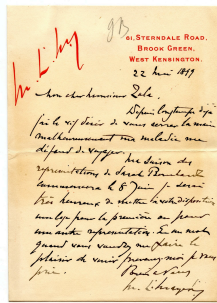 93
61, STERNDALE ROAD,
BROOK GREEN,
WEST KENSINGTON.
22 mai 1899
Mon cher Monsieur Zola.
Depuis longtemps déjà
j'ai le vif désir de vous serrer la main
malheureusement ma maladie me
défend de voyager.
Une saison des
représentations de Sarah Bernhardt
commencera le 8 Juin je serai
très heureux de mettre à votre disposition
une loge pour la première ou pour
une autre représentation. En un mot
quand vous voudrez me faire le
plaisir de venir prévenez-moi je vous
prie.